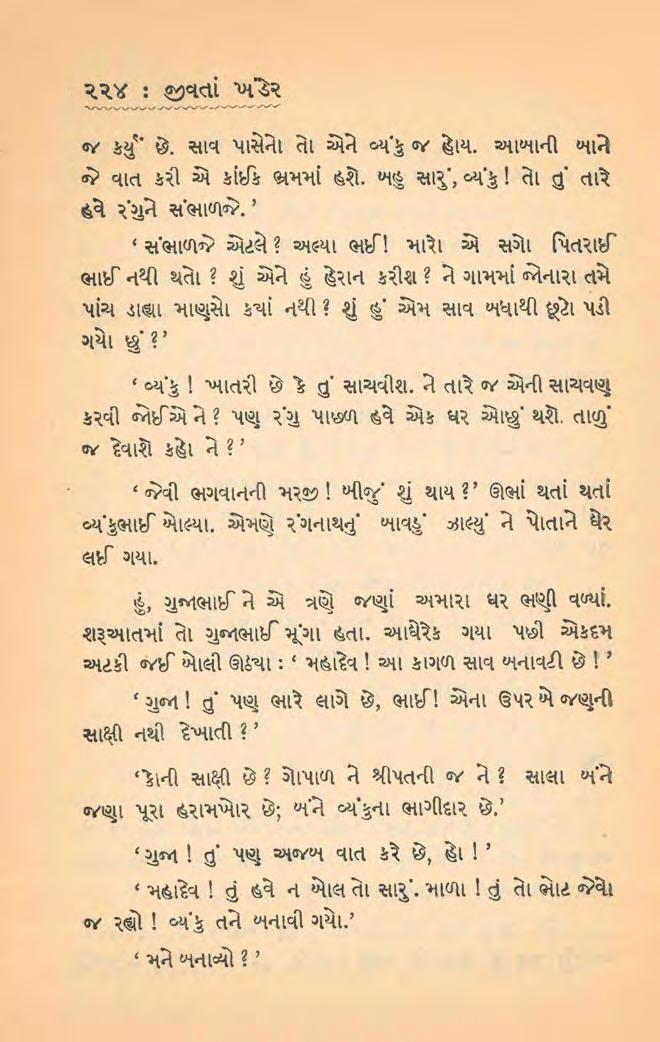 ૨૨૪ : જીવતાં ખંડેર
જ કર્યું છે. સાવ પાસેનો તો એને વ્યંકુ જ હોય. આબાની બાને
જે વાત કરી એ કાંઈક ભ્રમમાં હશે. બહુ સારું, વ્યંકુ! તો તું તારે
હવે રંગુને સંભાળજે.’
‘ સંભાળજે એટલે ? અલ્યા ભઈ! મારો એ સગો પિતરાઈ
ભાઈ નથી થતો ? શું એને હું હેરાન કરીશ ? ને ગામમાં જોનારા તમે
પાંચ ડાહ્યા માણસો કયાં નથી ? શું હું એમ સાવ બધાથી છૂટો પડી
ગયો છું ?’
‘ વ્યંકુ ! ખાતરી છે કે તું સાચવીશ. ને તારે જ એની સાચવણુ
કરવી જોઈએ ને ? પણ રંગુ પાછળ હવે એક ઘર ઓછું થશે. તાળું
જ દેવાશે કહો ને ?’
‘ જેવી ભગવાનની મરજી ! બીજું શું થાય ?’ ઊભાં થતાં થતાં
વ્યંકુભાઈ બોલ્યા. એમણે રંગનાથનું બાવડું ઝાલ્યું ને પોતાને ઘેર
લઈ ગયા.
હું, ગુજાભાઈ ને એ ત્રણે જણાં અમારા ઘર ભણી વળ્યાં.
શરૂઆતમાં તો ગુજાભાઈ મૂંગા હતા. આઘેરેક ગયા પછી એકદમ
અટકી જઈ બોલી ઊઠયા : ‘ મહાદેવ ! આ કાગળ સાવ બનાવટી છે ! ’
‘ ગુજા ! તું પણ ભારે લાગે છે, ભાઈ! એના ઉપર બે જણની
સાક્ષી નથી દેખાતી ? ’
‘કોની સાક્ષી છે ? ગોપાળ ને શ્રીપતની જ ને ? સાલા બંને
જણા પૂરા હરામખોર છે; બંને વ્યંકુના ભાગીદાર છે.’
‘ગુજા ! તું પણ અજબ વાત કરે છે, હો ! ’
‘ મહાદેવ ! તું હવે ન બોલ તો સારું. માળા ! તું તો ભોટ જેવો
જ રહ્યો ! વ્યંકુ તને બનાવી ગયો.’
‘ મને બનાવ્યો ? ’